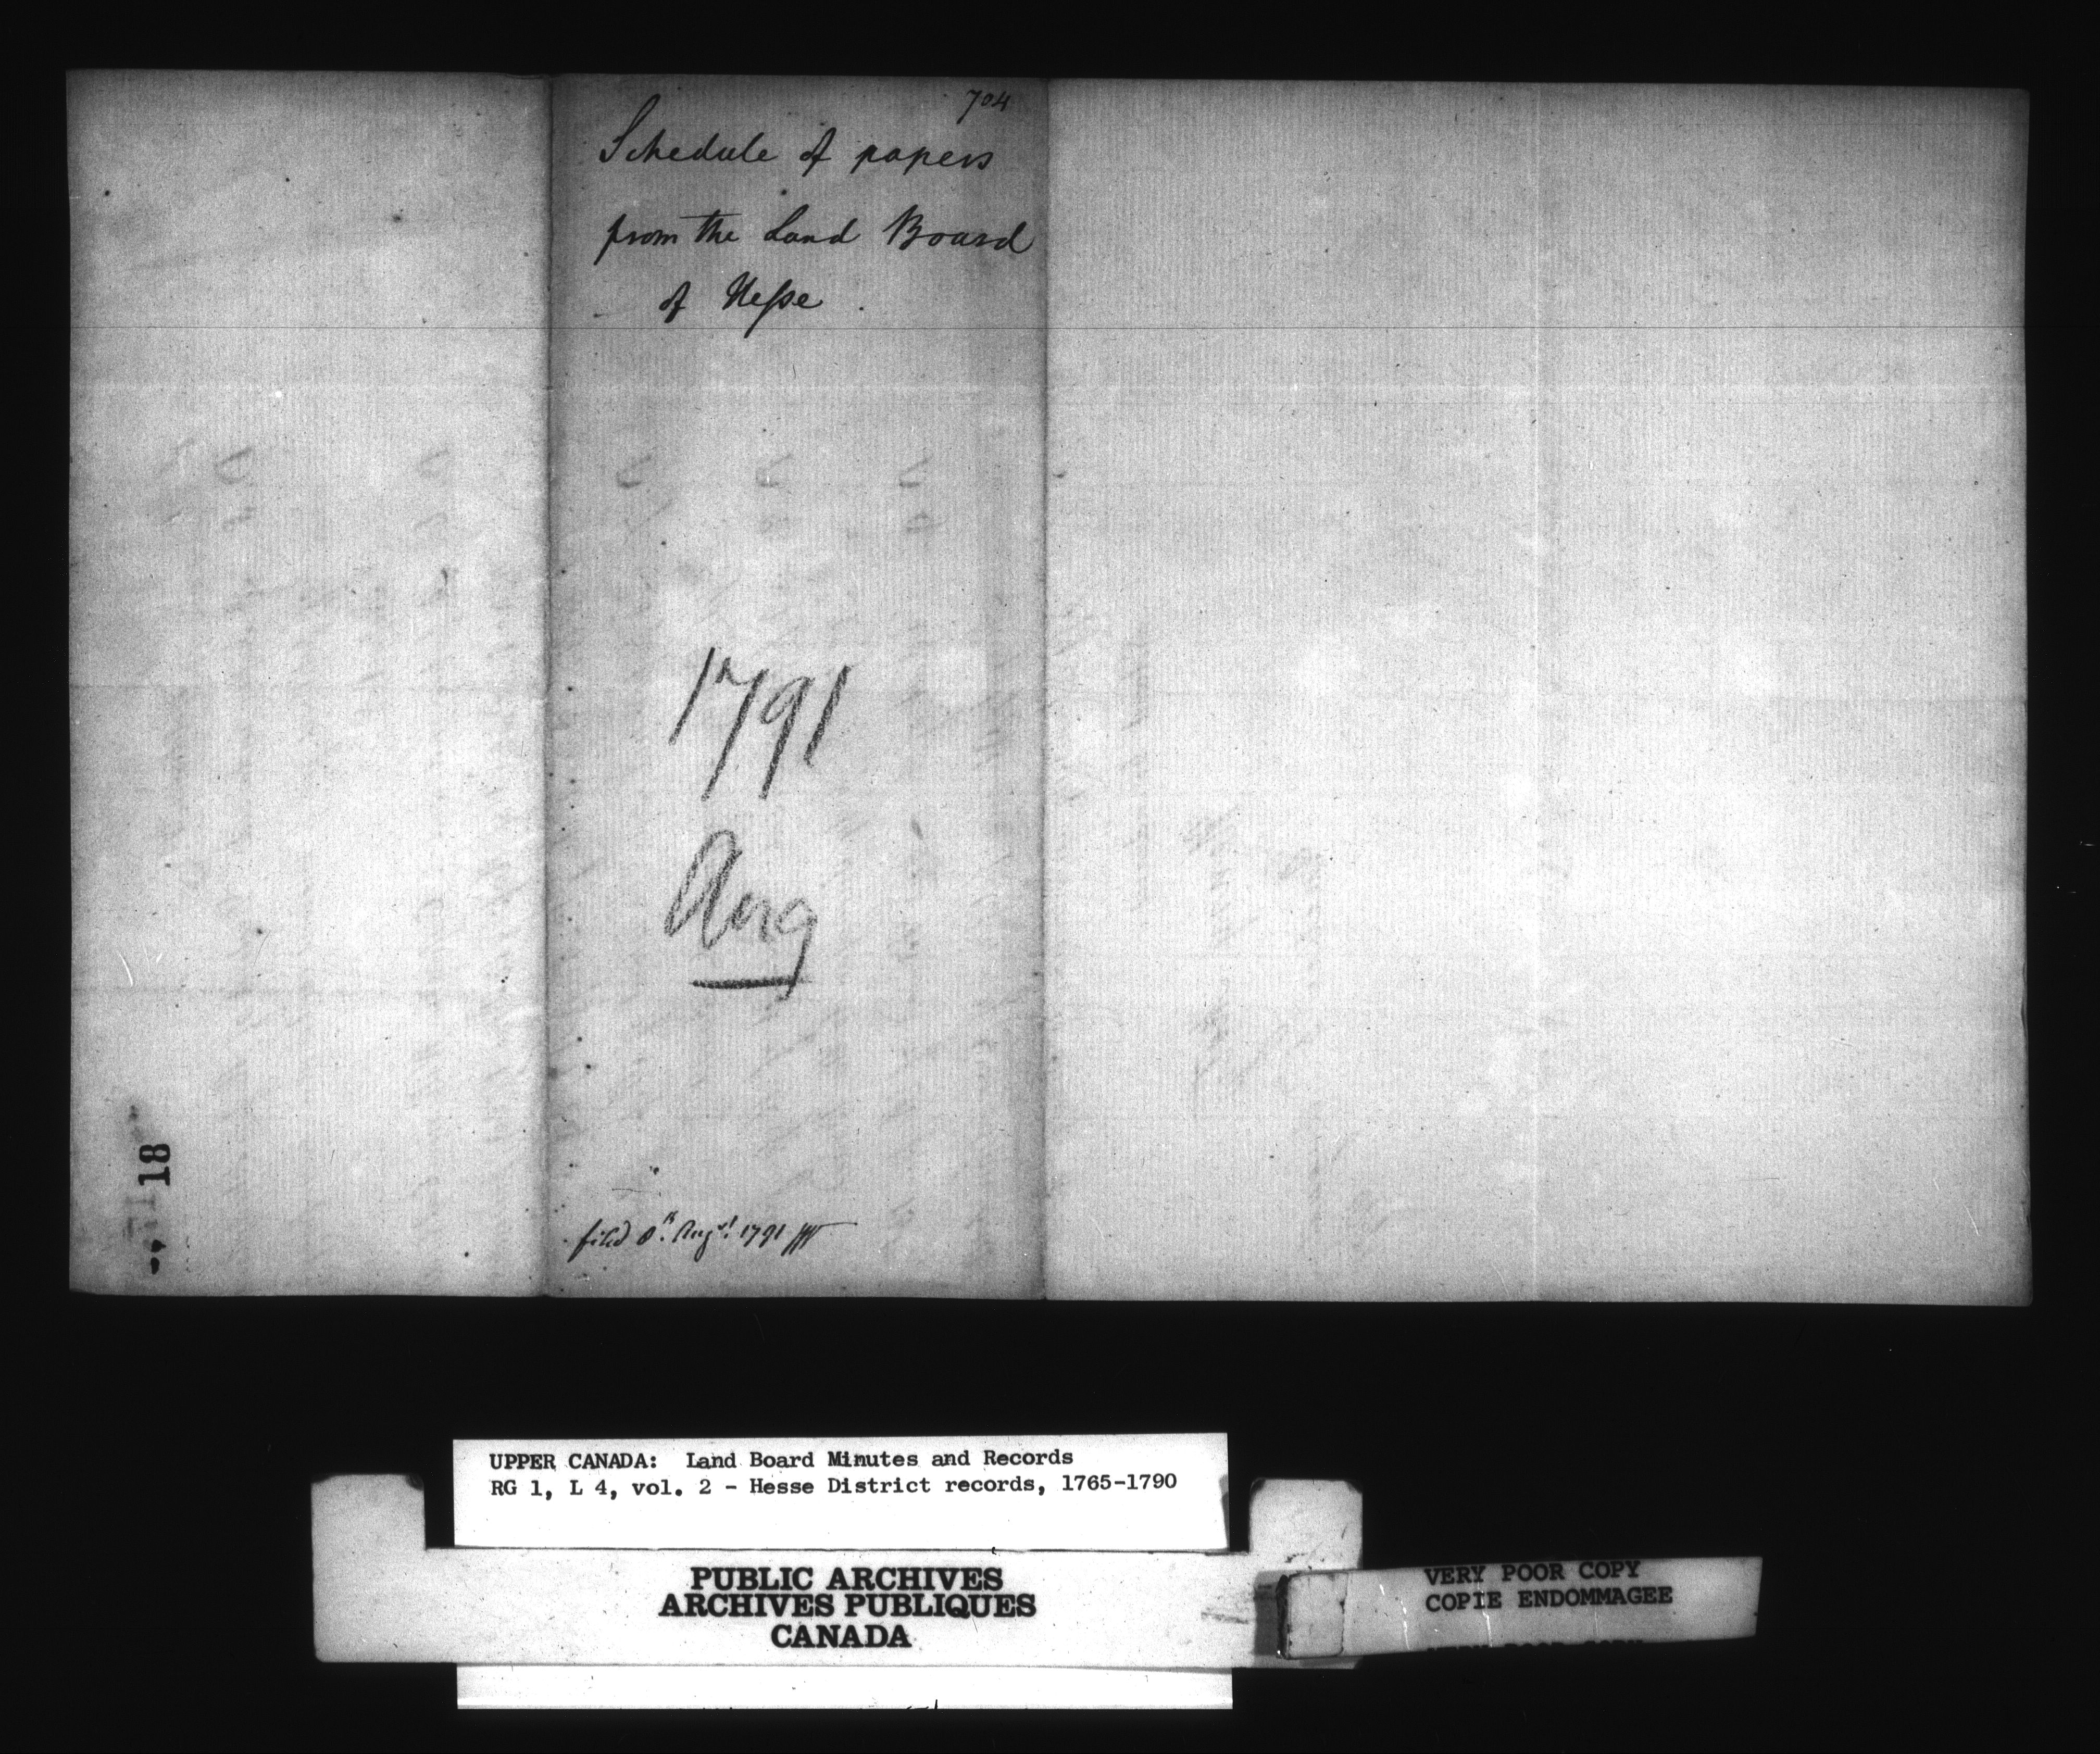 704
Schedule of papers
from the Land Board
of Hesse.
1791
Aug
filed 8th. Augst. 1791
18
UPPER CANADA: Land Board Minutes and Records
RG 1, L 4, vol. 2 - Hesse District records, 1765-1790
PUBLIC ARCHIVES
ARCHIVES PUBLIQUES
CANADA
VERY POOR COPY
COPIE ENDOMMAGEE
VERY POOR COPY